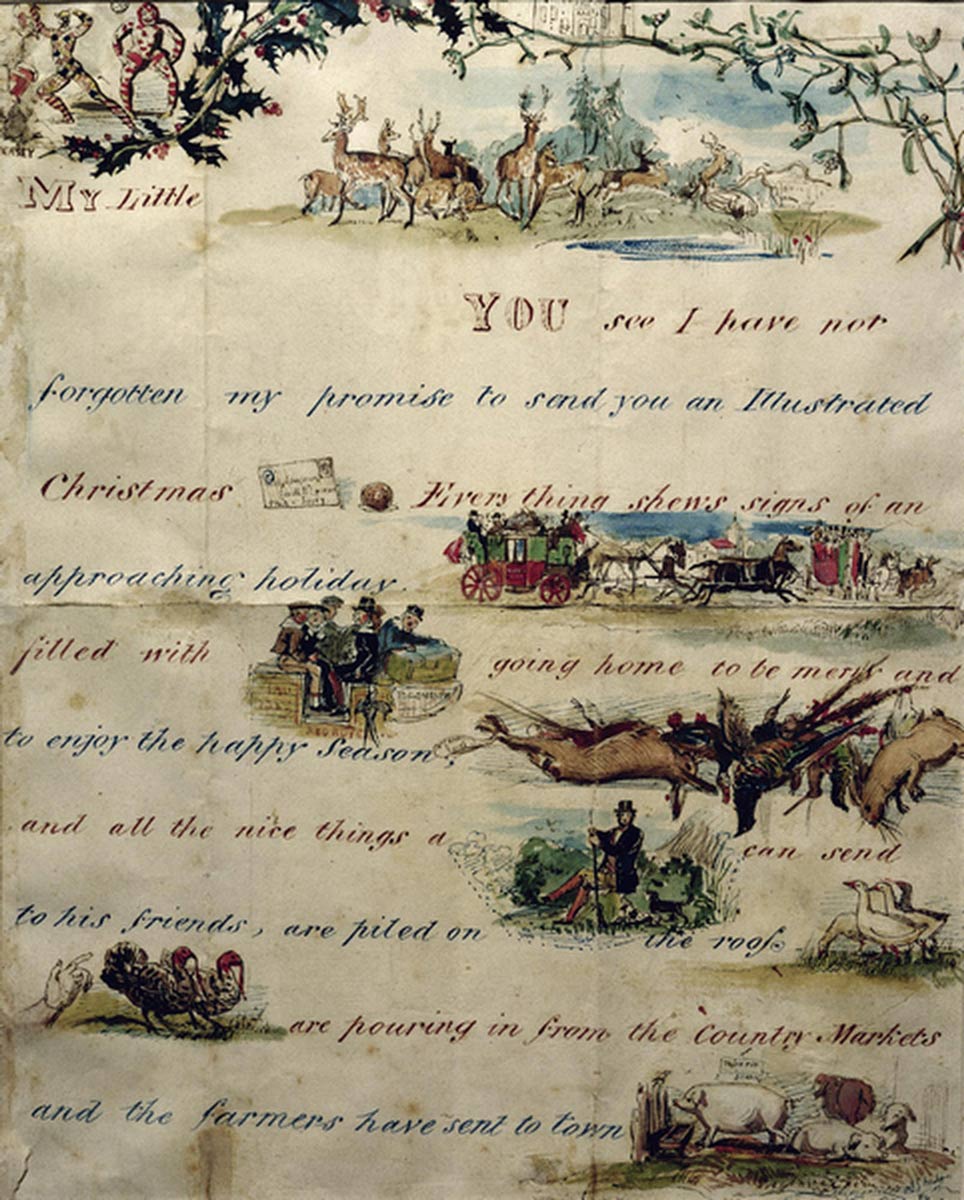 My Little
YOU see I have not
forgotten my promise to send you an Illustrated
Christmas Every thing shews signs of an
approaching holiday.
filled with going home to be merry and
to enjoy the happy Season.
and all the nice things a can send
to his friends, are piled on the roof
are pouring in from the Country Markets
and the farmers have sent to town